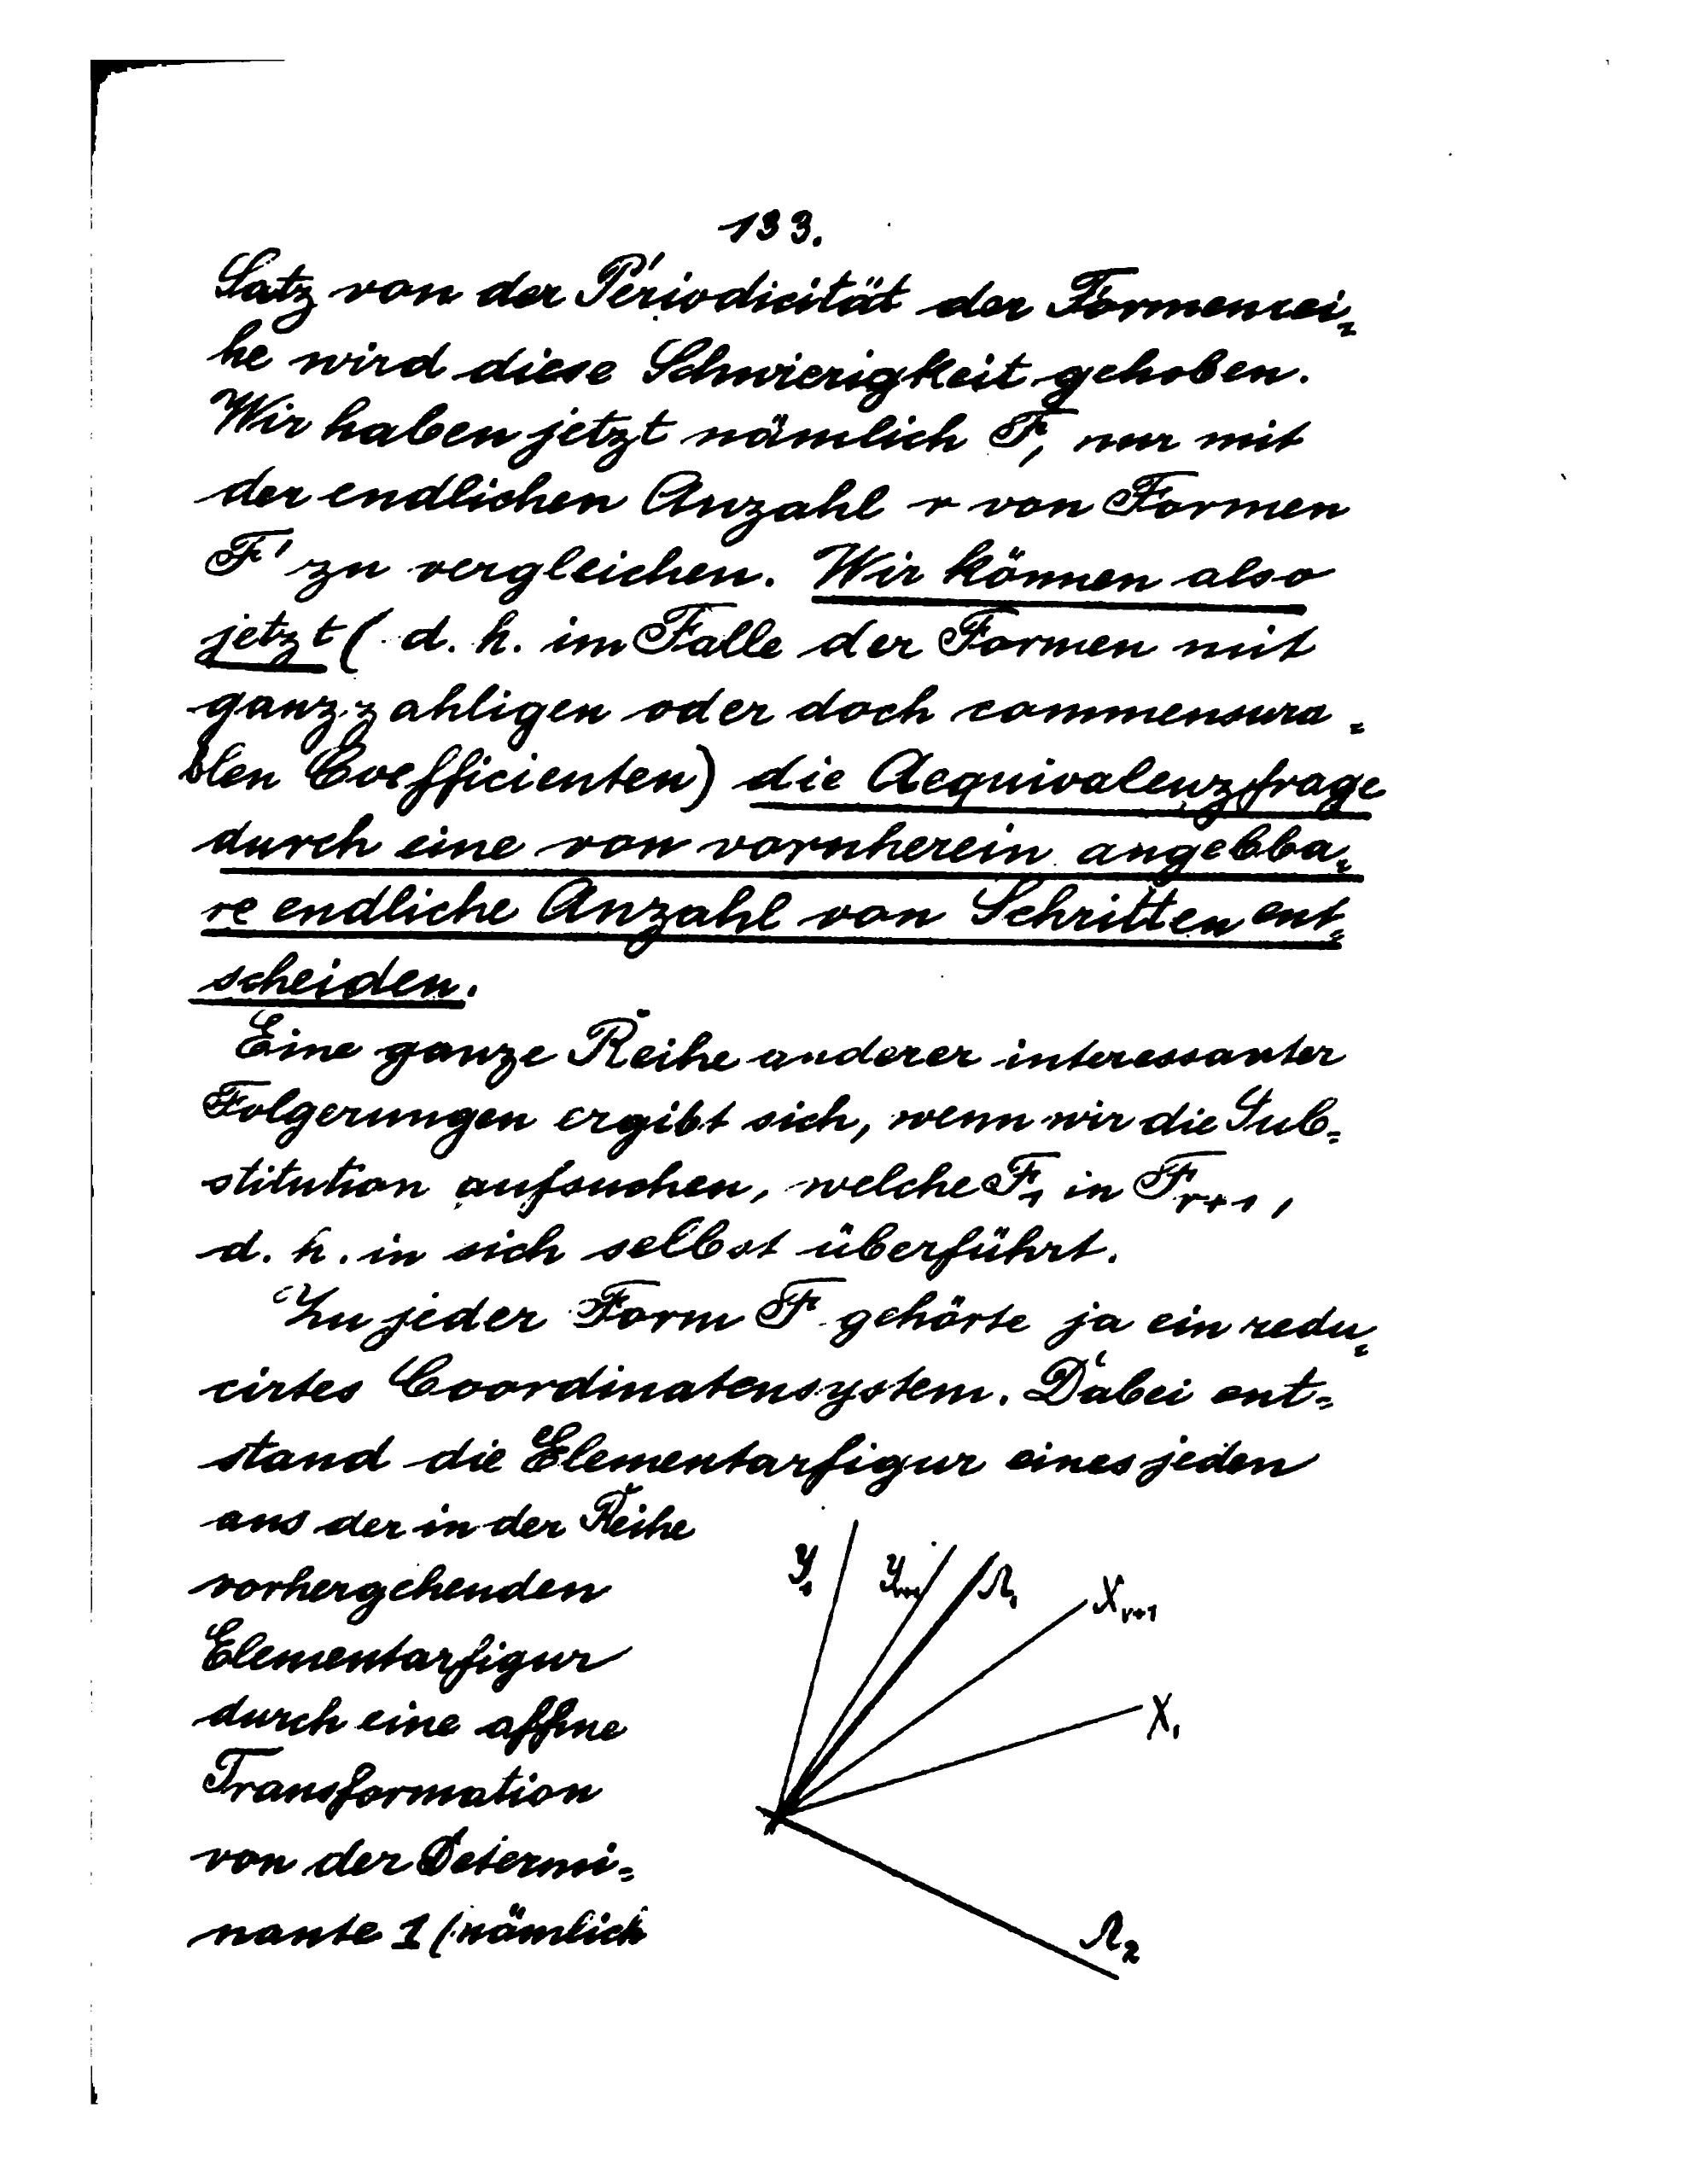 133.
Satz von der Periodicität der Formenrei„
he wird diese Schwierigkeit gehoben.
Wir haben jetzt nämlich F, nur mit
der endlichen Anzahl r von Formen
F' zu vergleichen. Wir können also
jetzt (d. h. im Falle der Formen mit
ganzzahligen oder doch commensura„
blen Coefficienten) die Aequivalenzfrage
durch eine von vornherein angebba„
re endliche Anzahl von Schritten ent„
scheiden.
Eine ganze Reihe anderer interessanter
Folgerungen ergibt sich, wenn wir die Sub=
stitution aufsuchen, welche F₁ in Fᵣ₊₁,
d. h. in sich selbst überführt.
Zu jeder Form F gehörte ja ein redu„
cirtes Coordinatensystem. Dabei ent=
stand die Elementarfigur eines jeden
aus der in der Reihe
vorhergehenden
Elementarfigur
durch eine affine
Transformation
von der Determi=
nante 1 (nämlich
Y₁
Ω₁
Xᵣ₊₁
X₁
Ω₂